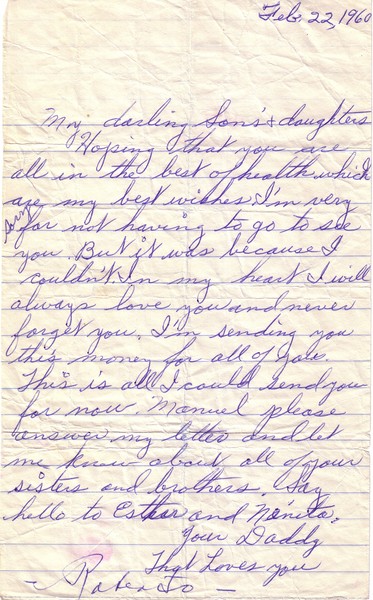 Feb. 22, 1960
My darling Son's & daughters
Hoping that you are
all in the best of health which
are my best wishes. I'm very
sorry for not having to go to see
you. But it was because I
couldn't. In my heart I will
always love you and never
forget you. I'm sending you
this money for all of you.
This is all I could send you
for now. Manuel please
answer my letter and let
me know about all of your
sisters and brothers. Say
hello to Esther and Nanita.
Your Daddy
That Loves you
- Roberto -